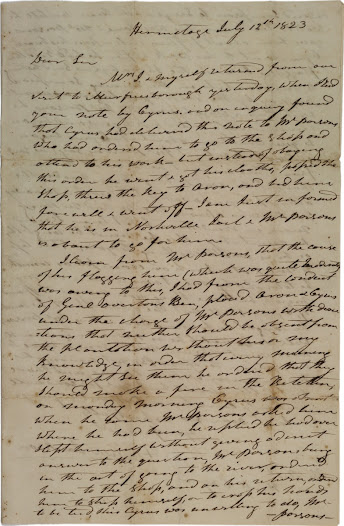 Hermitage July 12th 1823
Dear Sir
Mrs J & myself returned from our
visit to Murfreesborough yesterday, when I had
your note by Cyrus, and on enquiry found
that Cyrus had delivered this note to Mr Parsons
who had ordered him to go to the shop and
attend to his work but instead of obeying
this order he went & got his cloaths, passed the
Shop, threw the key to Aron, and bid him
farewell & went off I am just informed
that he is in Nashville Jail & Mr Parsons
is about to go for him
I learn from Mr Parsons, that the cause
of his flogging him (which was quite
was owing to this, I had from the conduct
of Genl Overtons Ben, placed Aron & Cyrus
under the charge of Mr Parsons with
that neither should be absent from
the plantation without his or my
knowledge, in order that every morning
he might see them he ordered that they
should make a fire in the Kitchen,
on monday morning Cyrus was absent
when he came Mr Parsons asked him
where he had been, he replied he had over
slept himself without giving a direct
answer to the question, Mr Parsons being
in the act of going to the river, ordered
him to the shop, and on his return, order
him to strip himself & to cross his hands
to be tied this Cyrus was unwilling to do, Mr
Parsons